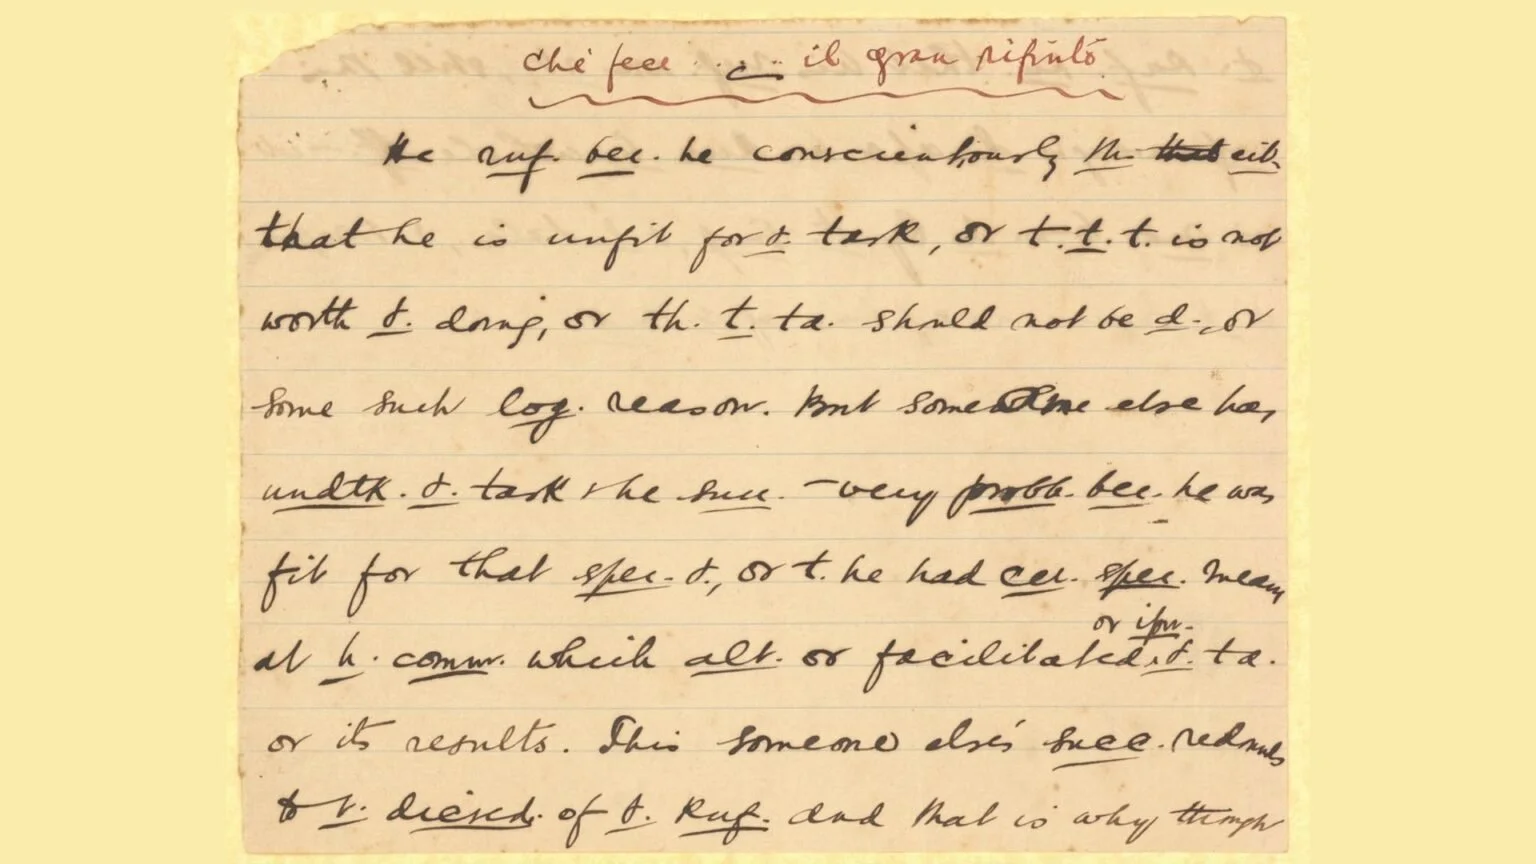 che fece .... il gran rifiuto
He ruf. bec. he conscientiously th. that eit.
that he is unfit for t. task, or t. t. t. is not
worth t. doing, or th. t. ta. should not be d., or
some such log. reason. But someone else has
undtk. t. task & he succ. - very probb. bec. he was
fit for that spec. t., or t. he had cer. spec. means
at h. comm. which alt. or facilitated t. ta.
or ipv.
or its results. This someone else's succ. redounds
to t. discred. of t. Ruf. and that is why though